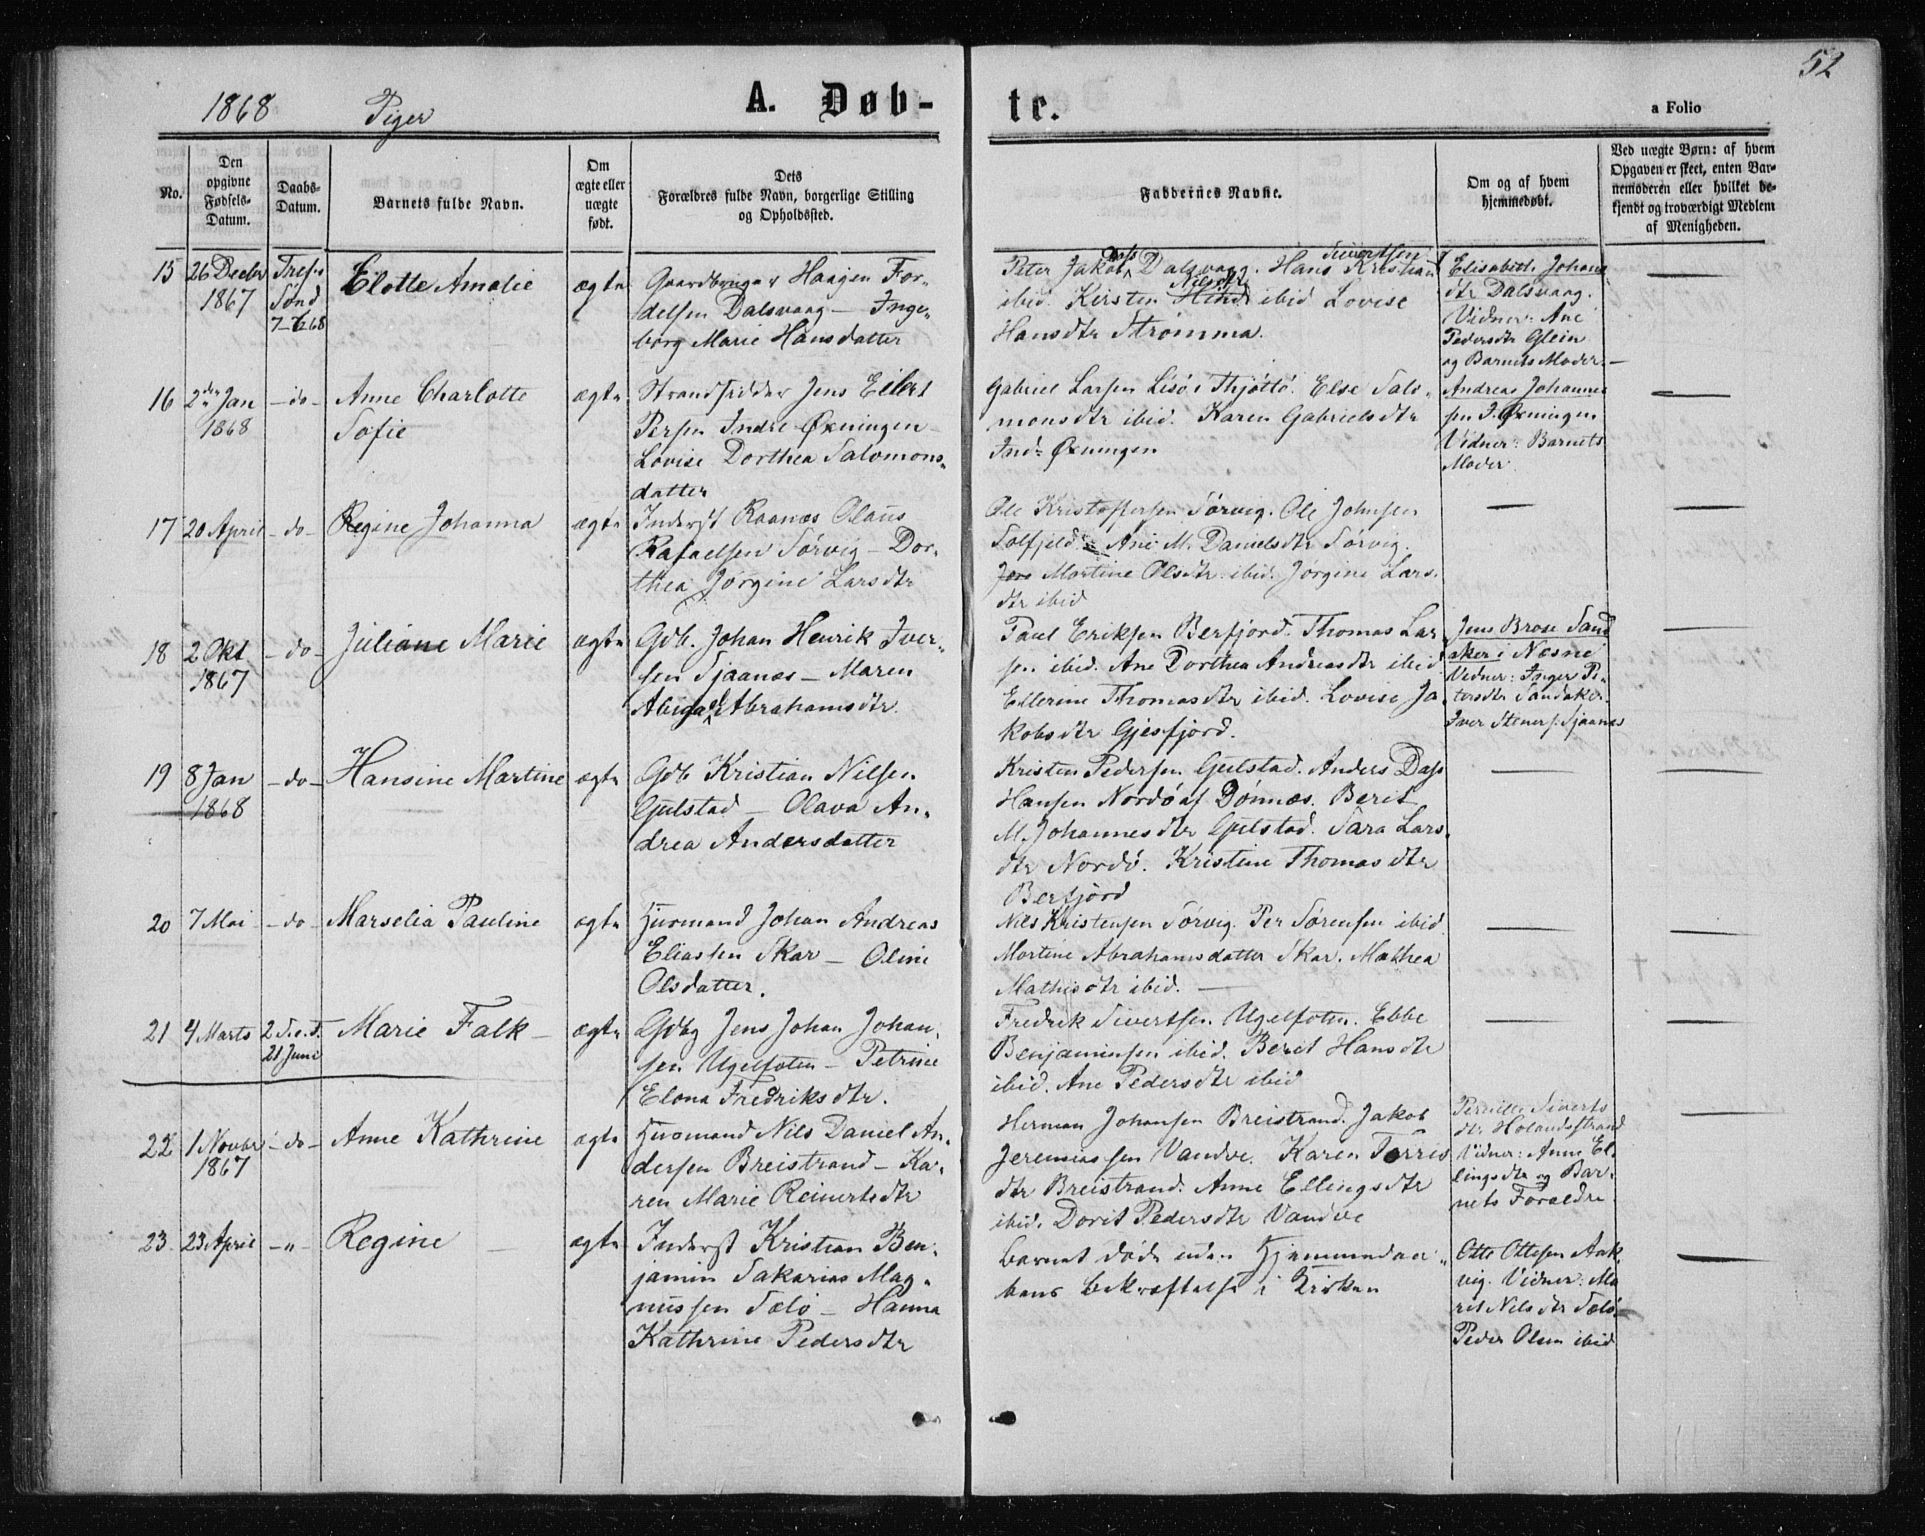 52
1868 Piger A. Døb-
te. a Folio
No.
Den
opgivne
Fødsels-
Datum.
Daabs-
Datum.
Barnets fulde Navn.
Om
ægte eller
uægte
født.
Dets
Forældres fulde Navn, borgerlige Stilling
og Opholdssted.
Faddernes Navne.
Om og af hvem
hjemmedøbt.
Ved uægte Børn: af hvem
Opgaven er skeet, enten Bar-
nemoderen eller hvilket be-
kjendt og troværdigt Medlem
af Menigheden.
15 26 Decbr
1867
Tref.s
Sønd
7-6-68
Elotte Amalie
ægte
Gaardbruger Haagen For-
delsen Dalsvaag – Inge-
borg Marie Hansdatter
Sivertsen
Peter Jakob Dalsvaag. Hans Kristian
Nilsdtr
ibid. Kirsten Hind ibid Lovise
Hansdtr Strømma.
Elisabeth Johans
dtr Dalsvaag.
Vidner: Ane
Pedersdtr Glein
og Barnets Moder. –
16 2den Jan
1868
- do -
Anne Charlotte
Sofie
ægte
Strandsidder Jens Eilert
Persen Indre Øxningen
Lovise Dorthea Salomons-
datter
Gabriel Larsen Lisø i Thjøttø. Else Salo-
monsdtr ibid. Karen Gabrielsdtr
Indr Øxningen
Andreas Johannes
sen I. Øxningen
Vidner: Barnets
Moder.
17 20 April - do -
Regine Johanna
ægte
Inderst Raanes Olaus
Rafaelsen Sørvig – Dor-
thea Jørgine Larsdtr
Ole Kristoffersen Sørvig. Ole Johnsen
Solfjeld. Ane M. Danielsdtr Sørvig.
Jørg Martine Olsdtr ibid. Jørgine Lars-
dtr ibid
18 2 Okt
1867
- do -
Juliane Marie
ægte
Gdb. Johan Henrik Iver-
sen Sjaanes – Maren
Abigael Abrahamsdtr.
Paul Eriksen Berfjord. Thomas Lar
sen ibid. Ane Dorthea Andreasdtr ibid
Ellerine Thomasdtr ibid. Lovise Ja
kobsdtr Gjesfjord.
Jens Brose Sand
aker i Næsne
Vidner: Inger Pe-
tersdtr Sandaker.
Iver Steners. Sjaanes
19 8 Jan
1868
- do -
Hansine Martine
ægte
Gdb Kristian Nilsen
Gulstad – Olava An-
drea Andersdatter
Kristen Pedersen Gulstad. Anders Dass
Hansen Nordø af Dønnæs. Berit
M. Johannesdtr Gulstad. Sara Lars-
dtr Nordø. Kristine Thomasdtr
Berfjord
20 7 Mai - do -
Marselia Pauline
ægte
Huusmand Johan Andreas
Eliassen Skar – Oline
Olsdatter.
Nils Kristensen Sørvig. Per Sørensen ibid.
Martine Abrahamsdatter Skar. Mathea
Mathisdtr ibid. –
21 4 Marts
2 S.e.T.
21 Juni
Marie Falk –
ægte
Gdbg Jens Johan Johan-
sen Ugelfoten – Petrine
Elona Fredriksdtr.
Fredrik Sivertsen Ugelfoten. Ebbe
Benjaminsen ibid. Berit Hansdtr
ibid. Ane Pedersdtr ibid
22 1 Novbr
1867
- do -
Anne Kathrine
ægte
Huusmand Nils Daniel An-
dersen Breistrand – Ka-
ren Marie Reinertsdtr
Herman Johansen Breistrand. Jakob
Jeremiassen Vandve. Karen Torris
dtr Breistrand. Anne Ellingsdtr
ibid. Dorit Pedersdtr Vandve
Pernille Siverts
dtr Holandsstrand
Vidner: Anne El-
lingsdtr og Bar-
nets Forældre
23. 23 April - „ -
Regine –
ægte
Inderst Kristian Ben-
jamin Sakarias Mag-
nussen Sælø – Hanna
Kathrine Pedersdtr
barnet døde uden Hjemmedaa-
bens bekræftelse i Kirken
Otte Ottesen Aak-
vig. Vidner: Ma
rit Nilsdtr Sælø
Peder Olsen ibid